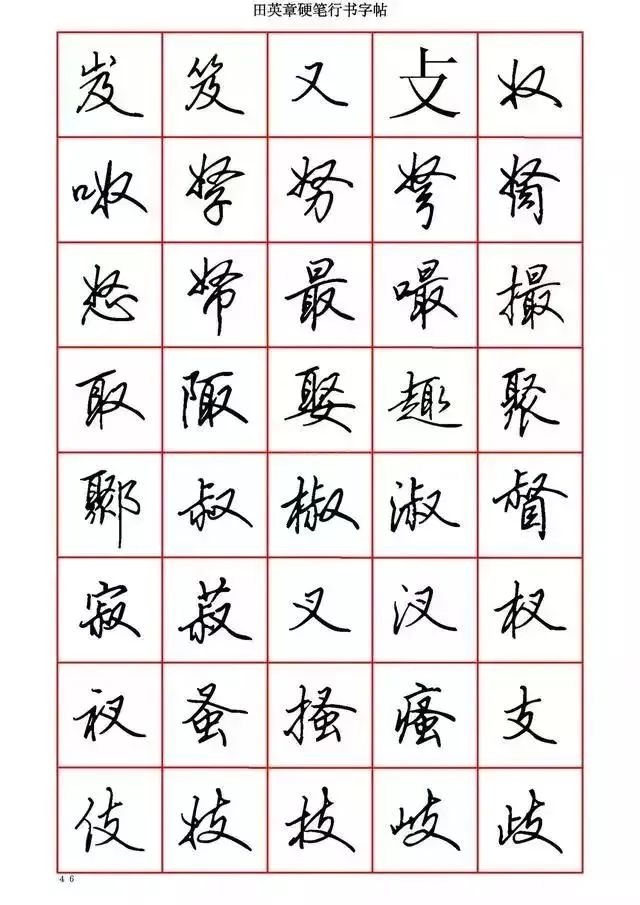 田英章硬笔行书字帖
岌 笈 又 攴 奴
呶 孥 努 弩 胬
怒 帑 最 嘬 撮
取 陬 娶 趣 聚
鄹 叔 椒 淑 督
寂 菽 叉 汊 杈
衩 蚤 搔 瘙 支
伎 妓 技 岐 歧
46